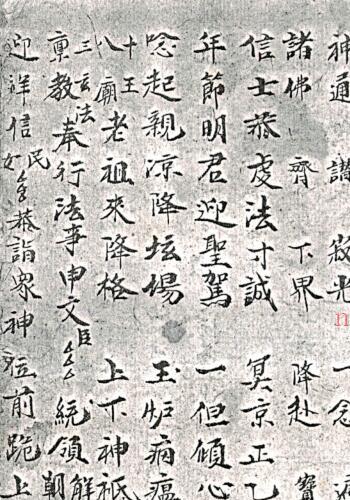 神通讃寂光 一念
諸佛 齊 下界 降赴 寶
信士恭虔法寸誠 冥京正乙
年節明君迎聖駕 一但傾心
唸起親凉降坛場 玉炉病瘟
十王八廟老祖來降格 上下神祇
三玄法稟教奉行法事申文臣厶厶統領解朝
迎祥信民女厶厶恭詣衆神位前跪上